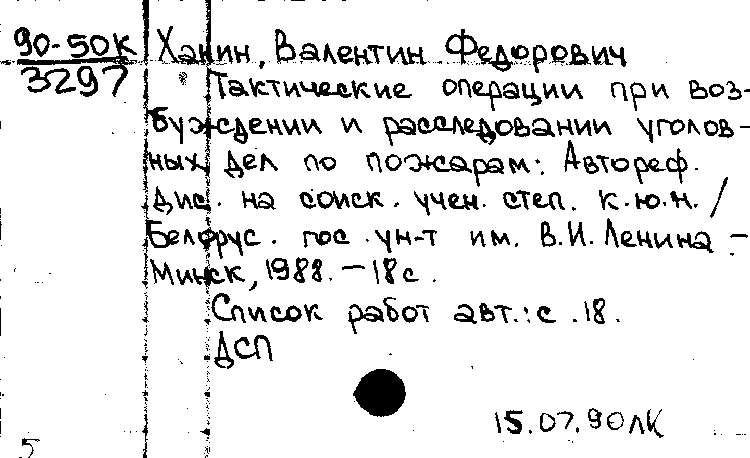 90-50К Ханин, Валентин Федорович
3297 Тактические операции при воз-
буждении и расследовании уголов-
ных дел по пожарам: Автореф.
Дис. на соиск. учен. степ. к.ю.н. /
Белорус. гос. ун-т им. В.И. Ленина -
Минск, 1988. - 18 с.
Список работ авт.: с. 18.
ДСП
15.07.90 ЛК
5